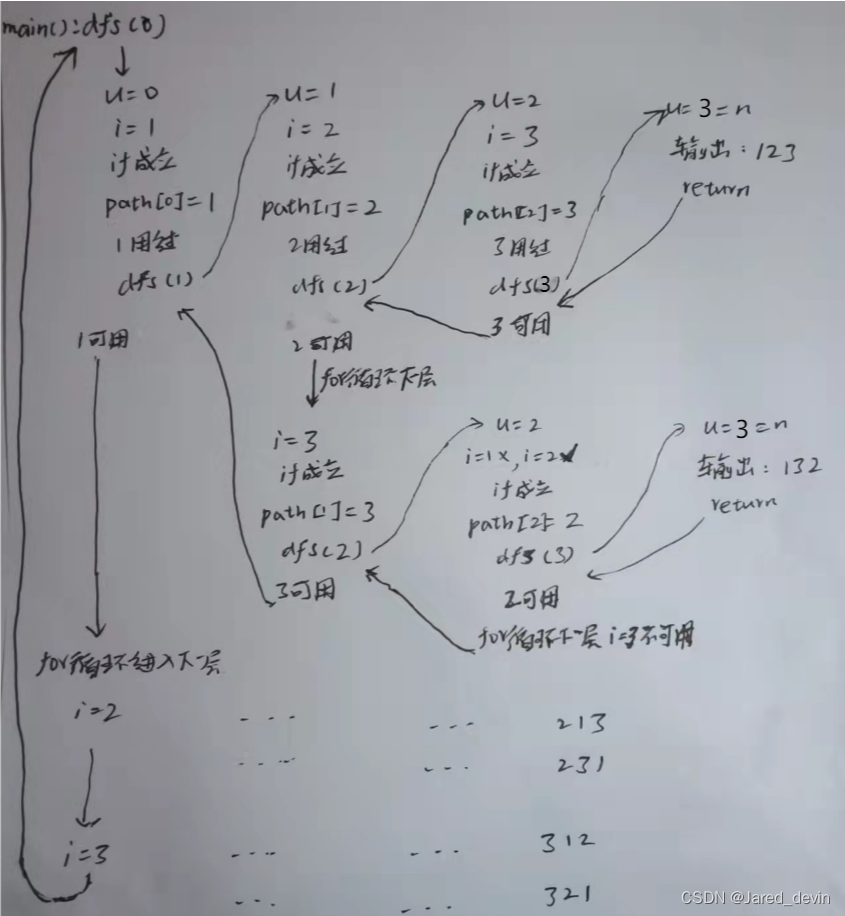 main():dfs(0)
u=0
i=1
if成立
path[0]=1
1用过
dfs(1)
1可用
u=1
i=2
if成立
path[1]=2
2用过
dfs(2)
2可用
for循环下一层
u=2
i=3
if成立
path[2]=3
3用过
dfs(3)
3可用
u=3=n
输出:123
return
i=3
if成立
path[1]=3
dfs(2)
3可用
u=2
i=1×,i=2✓
if成立
path[2]=2
dfs(3)
2可用
for循环下一层 i=3不可用
u=3=n
输出:132
return
for循环进入下一层
i=2 ---- --- 213
---- --- 231
i=3 --- --- 312
--- --- 321
CSDN @Jared_devin